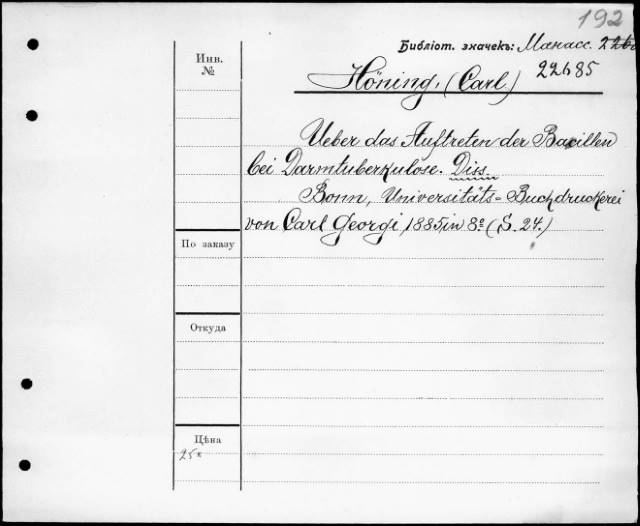 192
Библіот. значекъ: Манасс.
22685
Инв.
№
Höning, (Carl)
Ueber das Auftreten der Bacillen
bei Darmtuberkulose. Diss.
Bonn, Universitäts=Buchdruckerei
von Carl Georgi, 1885 in 8º (S. 24.)
По заказу
Откуда
Цѣна
25к